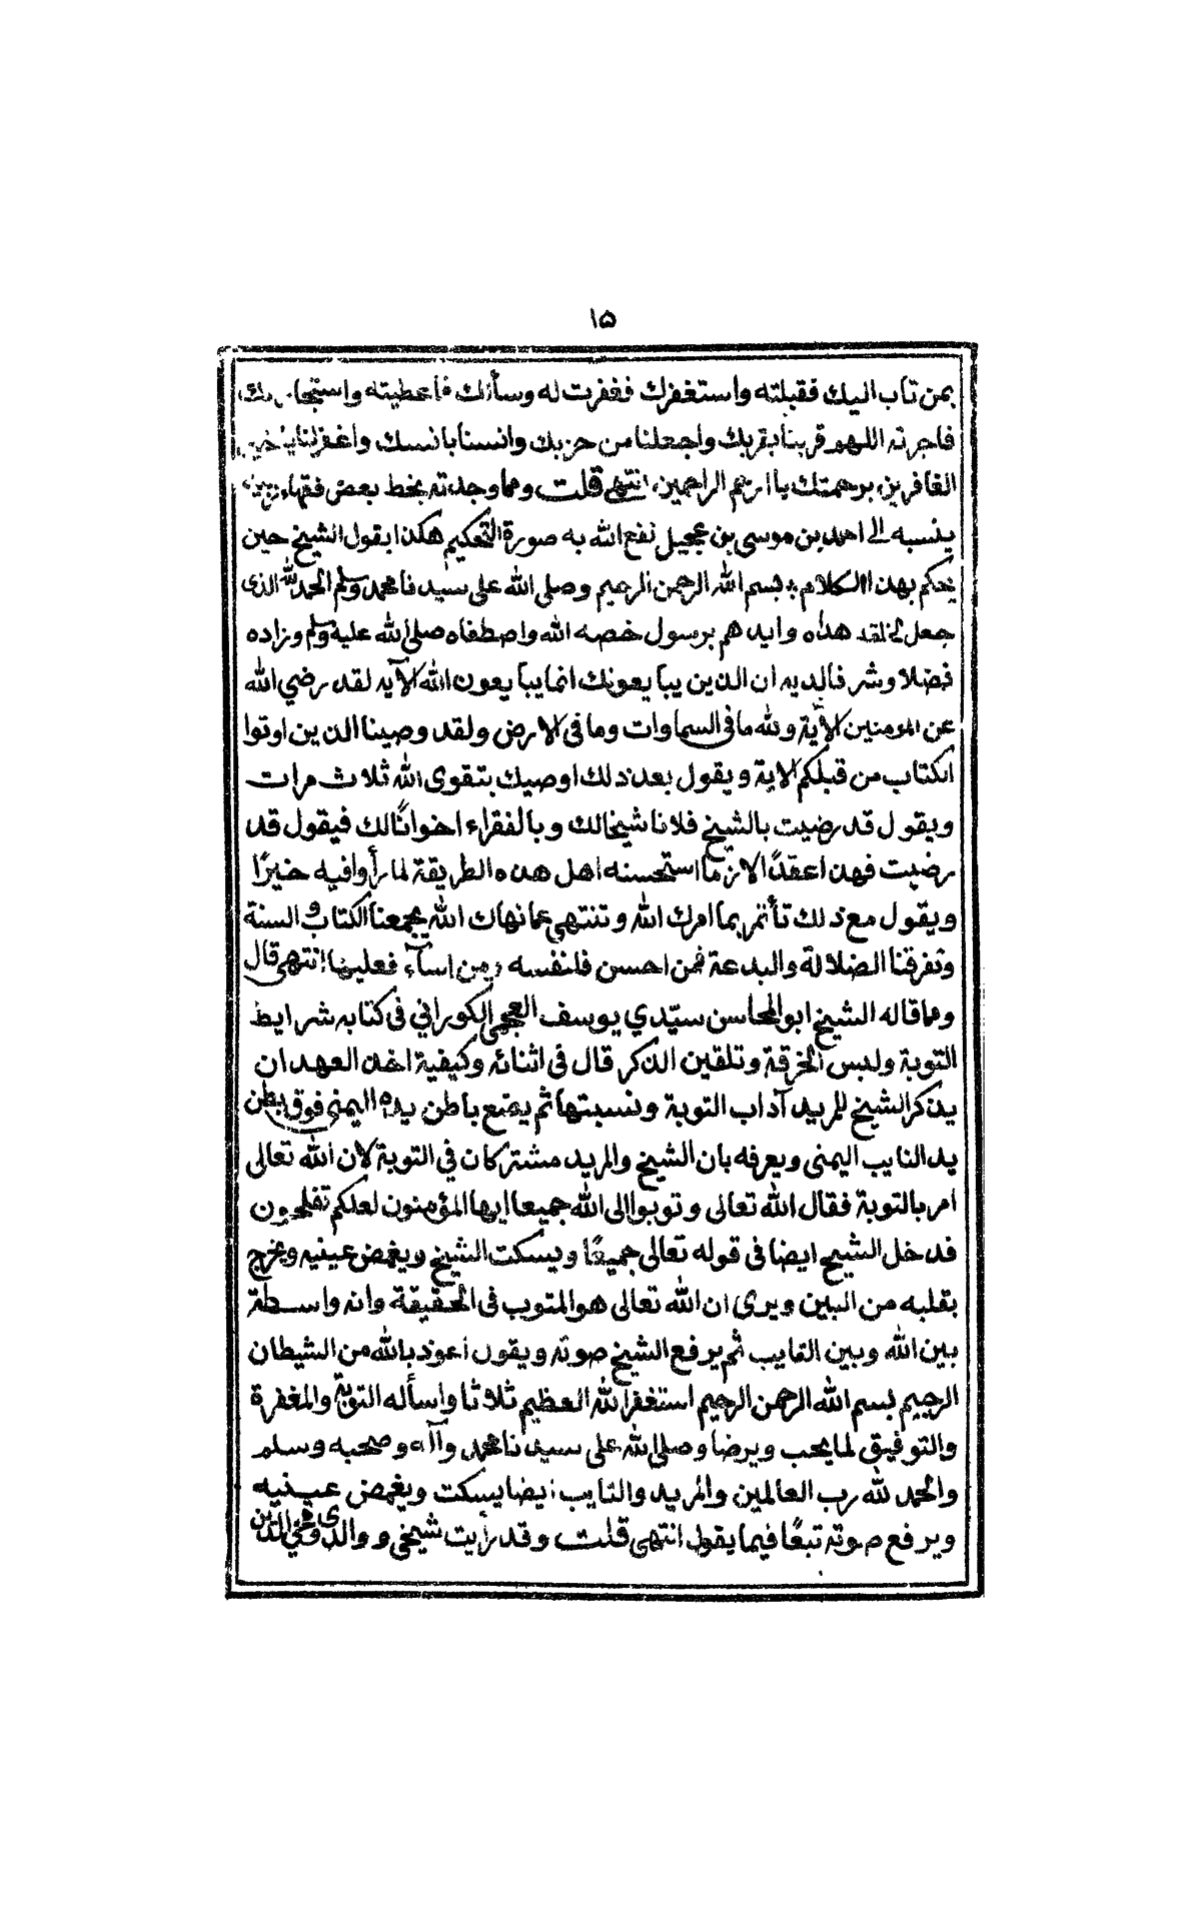 ١٥
بمن تاب اليك فقبلته واستغفرك فغفرت له وسألك فاعطيته واستجا
فاجرته اللهم قربنا بقربك واجعلنا من حزبك وانسنا بانسك واغفرلنا ياخير
الغافرين برحمتك ياارحم الراحمين انتهى قلت ومما وجدته بخط بعض فقهاء
ينسبه الى احمد بن موسى بن عجيل نفع الله به صورة التحكيم هكذا يقول الشيخ حين
يحكم بهذا الكلام بسم الله الرحمن الرحيم وصلى الله على سيدنا محمد وسلم الحمد لله الذى
جعل لخلقه هداه وايدهم برسول خصه الله واصطفاه صلى الله عليه وسلم وزاده
فضلا وشرفا لديه ان الذين يبايعونك انما يبايعون الله الآيه لقد رضي الله
عن المومنين الآية ولله ما فى السماوات وما فى الارض ولقد وصينا الذين اوتوا
الكتاب من قبلكم الاية ويقول بعد ذلك اوصيك بتقوى الله ثلاث مرات
ويقول قد رضيت بالشيخ فلانا شيخالك وبالفقراء اخوانًالك فيقول قد
رضيت فهذا عقدًا لازما استحسنه اهل هذه الطريقة لما رأوا فيه خيرًا
ويقول مع ذلك تأتمر بما امرك الله وتنتهي عما نهاك الله يجمعنا الكتاب و السنة
وتفرقنا الضلالة والبدعة فمن احسن فلنفسه ومن اسآء فعليها انتهى قال
ومما قاله الشيخ ابو المحاسن سيّدي يوسف العجمى الكوراني فى كتابه شرايط
التوبة ولبس الخرقة وتلقين الذكر قال فى اثنائه وكيفية اخذ العهد ان
يذكر الشيخ للمريد آداب التوبة ونسبتها ثم يضع باطن يده اليمنى فوق بطن
يد النايب اليمنى ويعرفه بان الشيخ والمريد مشتركان في التوبة لان الله تعالى
امر بالتوبة فقال الله تعالى وتوبوا الى الله جميعا ايها المؤمنون لعلكم تفلحون
فدخل الشيخ ايضا فى قوله تعالى جميعًا ويسكت الشيخ ويغمض عينيه ويخرج
بقلبه من البين ويرى ان الله تعالى هو المتوب فى الحقيقة وانه واسطة
بين الله وبين التايب ثم يرفع الشيخ صوته ويقول اعوذ بالله من الشيطان
الرجيم بسم الله الرحمن الرحيم استغفر الله العظيم ثلاثا واسأله التوبة والمغفرة
والتوفيق لما يحب ويرضا وصلى الله على سيدنا محمد وآله وصحبه وسلم
والحمد لله رب العالمين والمريد والتايب ايضا يسكت ويغمض عينيه
ويرفع صوته تبعًا فيما يقول انتهى قلت وقد رأيت شيخى ووالدى